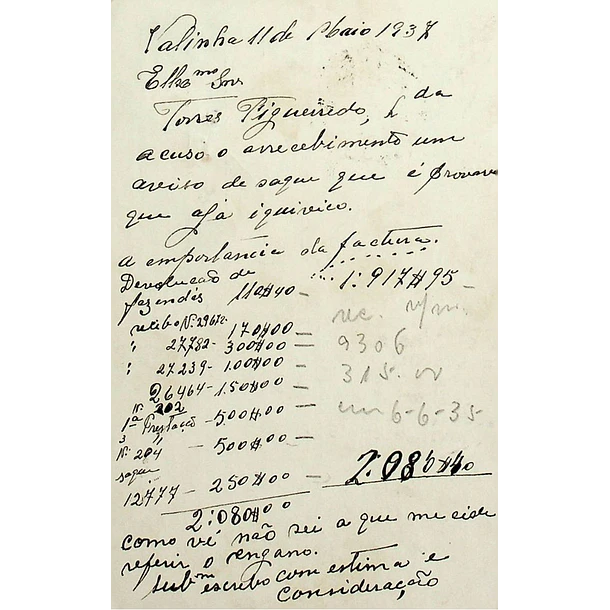 Valinha 11 de Maio 1937
Ellxmo Snr
Torres Figueiredo, L da
acuso o arrecebimento um
aveiso de saque que é provavel
que ajá iquivico.
a emportancia da factura.
1:917$95
Devolucão de
fazendas 110$40
recibo Nº 29672-
170$00
" 27782- 300$00
" 27239- 100$00
26464- 150$00
Nº 202
1ª Prestação - 500$00
Nº 204 - 500$00
saque
12777 - 250$00
2:080$00
rec. n/m.
9306
315.00
em 6-6-35
2:086$40
como vê não sei a que me cide
referir o engano.
subm escrebo com estima e
Consideração